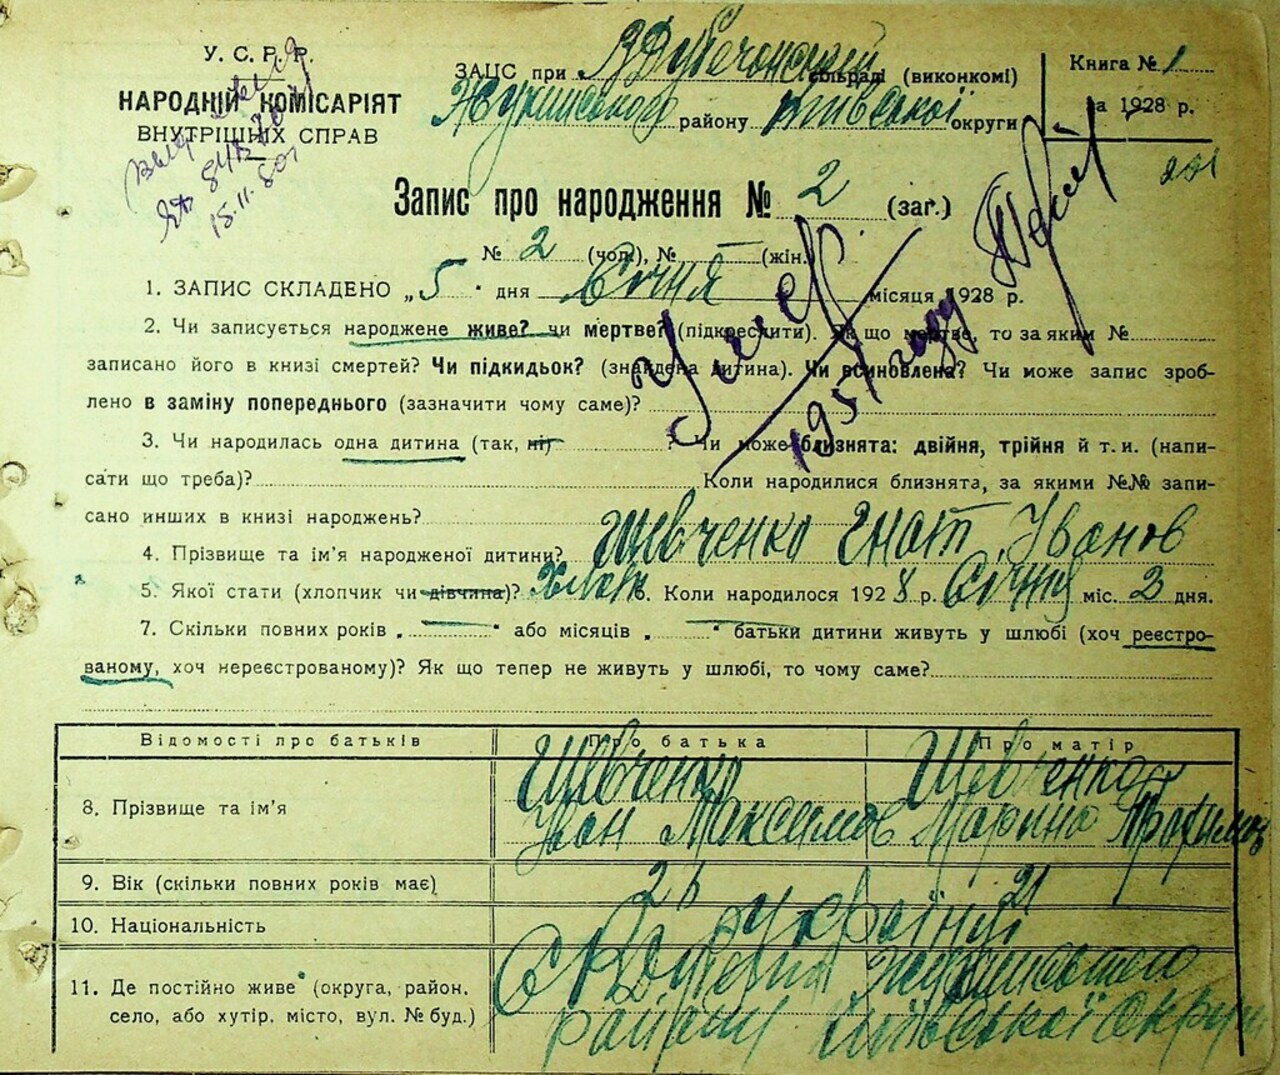 У. С. Р. Р.
НАРОДНІЙ КОМІСАРІЯТ
ВНУТРІШНІХ СПРАВ
84
15.11.80
ЗАГС при сільраді (виконкомі)
району Київської округи
Книга № 1
за 1928 р.
Запис про народження № 2 (заг.)
№ 2 (чол.), № — (жін.)
1. ЗАПИС СКЛАДЕНО „5" дня Січня місяця 1928 р.
2. Чи записується народжене живе? чи мертве? (підкреслити). Як що мертве, то за яким №
записано його в книзі смертей? Чи підкидьок? (знайдена дитина). Чи всиновлена? Чи може запис зроб-
лено в заміну попереднього (зазначити чому саме)?
Умер
1957 году
3. Чи народилась одна дитина (так, ні) ? Чи може близнята: двійня, трійня й т. и. (напи-
сати що треба)? Коли народилися близнята, за якими №№ запи-
сано инших в книзі народжень?
4. Прізвище та ім'я народженої дитини? Шевченко Гнат Іванов
5. Якої стати (хлопчик чи дівчина)? Хлопч. Коли народилося 1928 р. Січня міс. 2 дня.
7. Скільки повних років „ " або місяців „ " батьки дитини живуть у шлюбі (хоч реєстро-
ваному, хоч нереєстрованому)? Як що тепер не живуть у шлюбі, то чому саме?
Відомості про батьків Про батька Про матір
8. Прізвище та ім'я Шевченко Іван Максимов Шевченко Марина
9. Вік (скільки повних років має) 26 21
10. Національність Українці
11. Де постійно живе (округа, район,
село, або хутір, місто, вул. № буд.) району Київської Округи